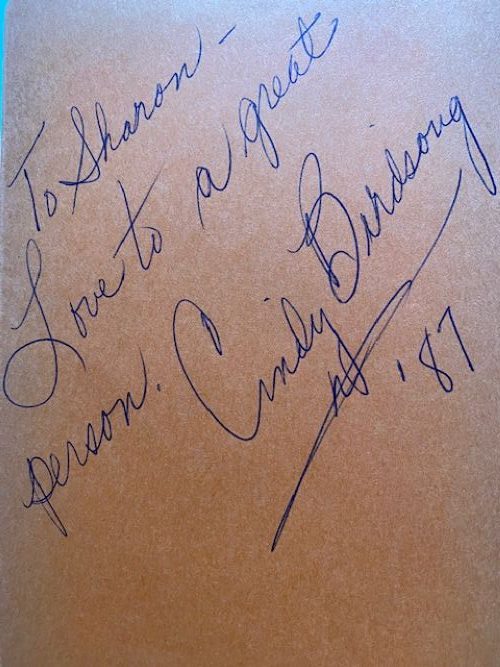 To Sharon -
Love to a great
person. Cindy Birdsong
'87